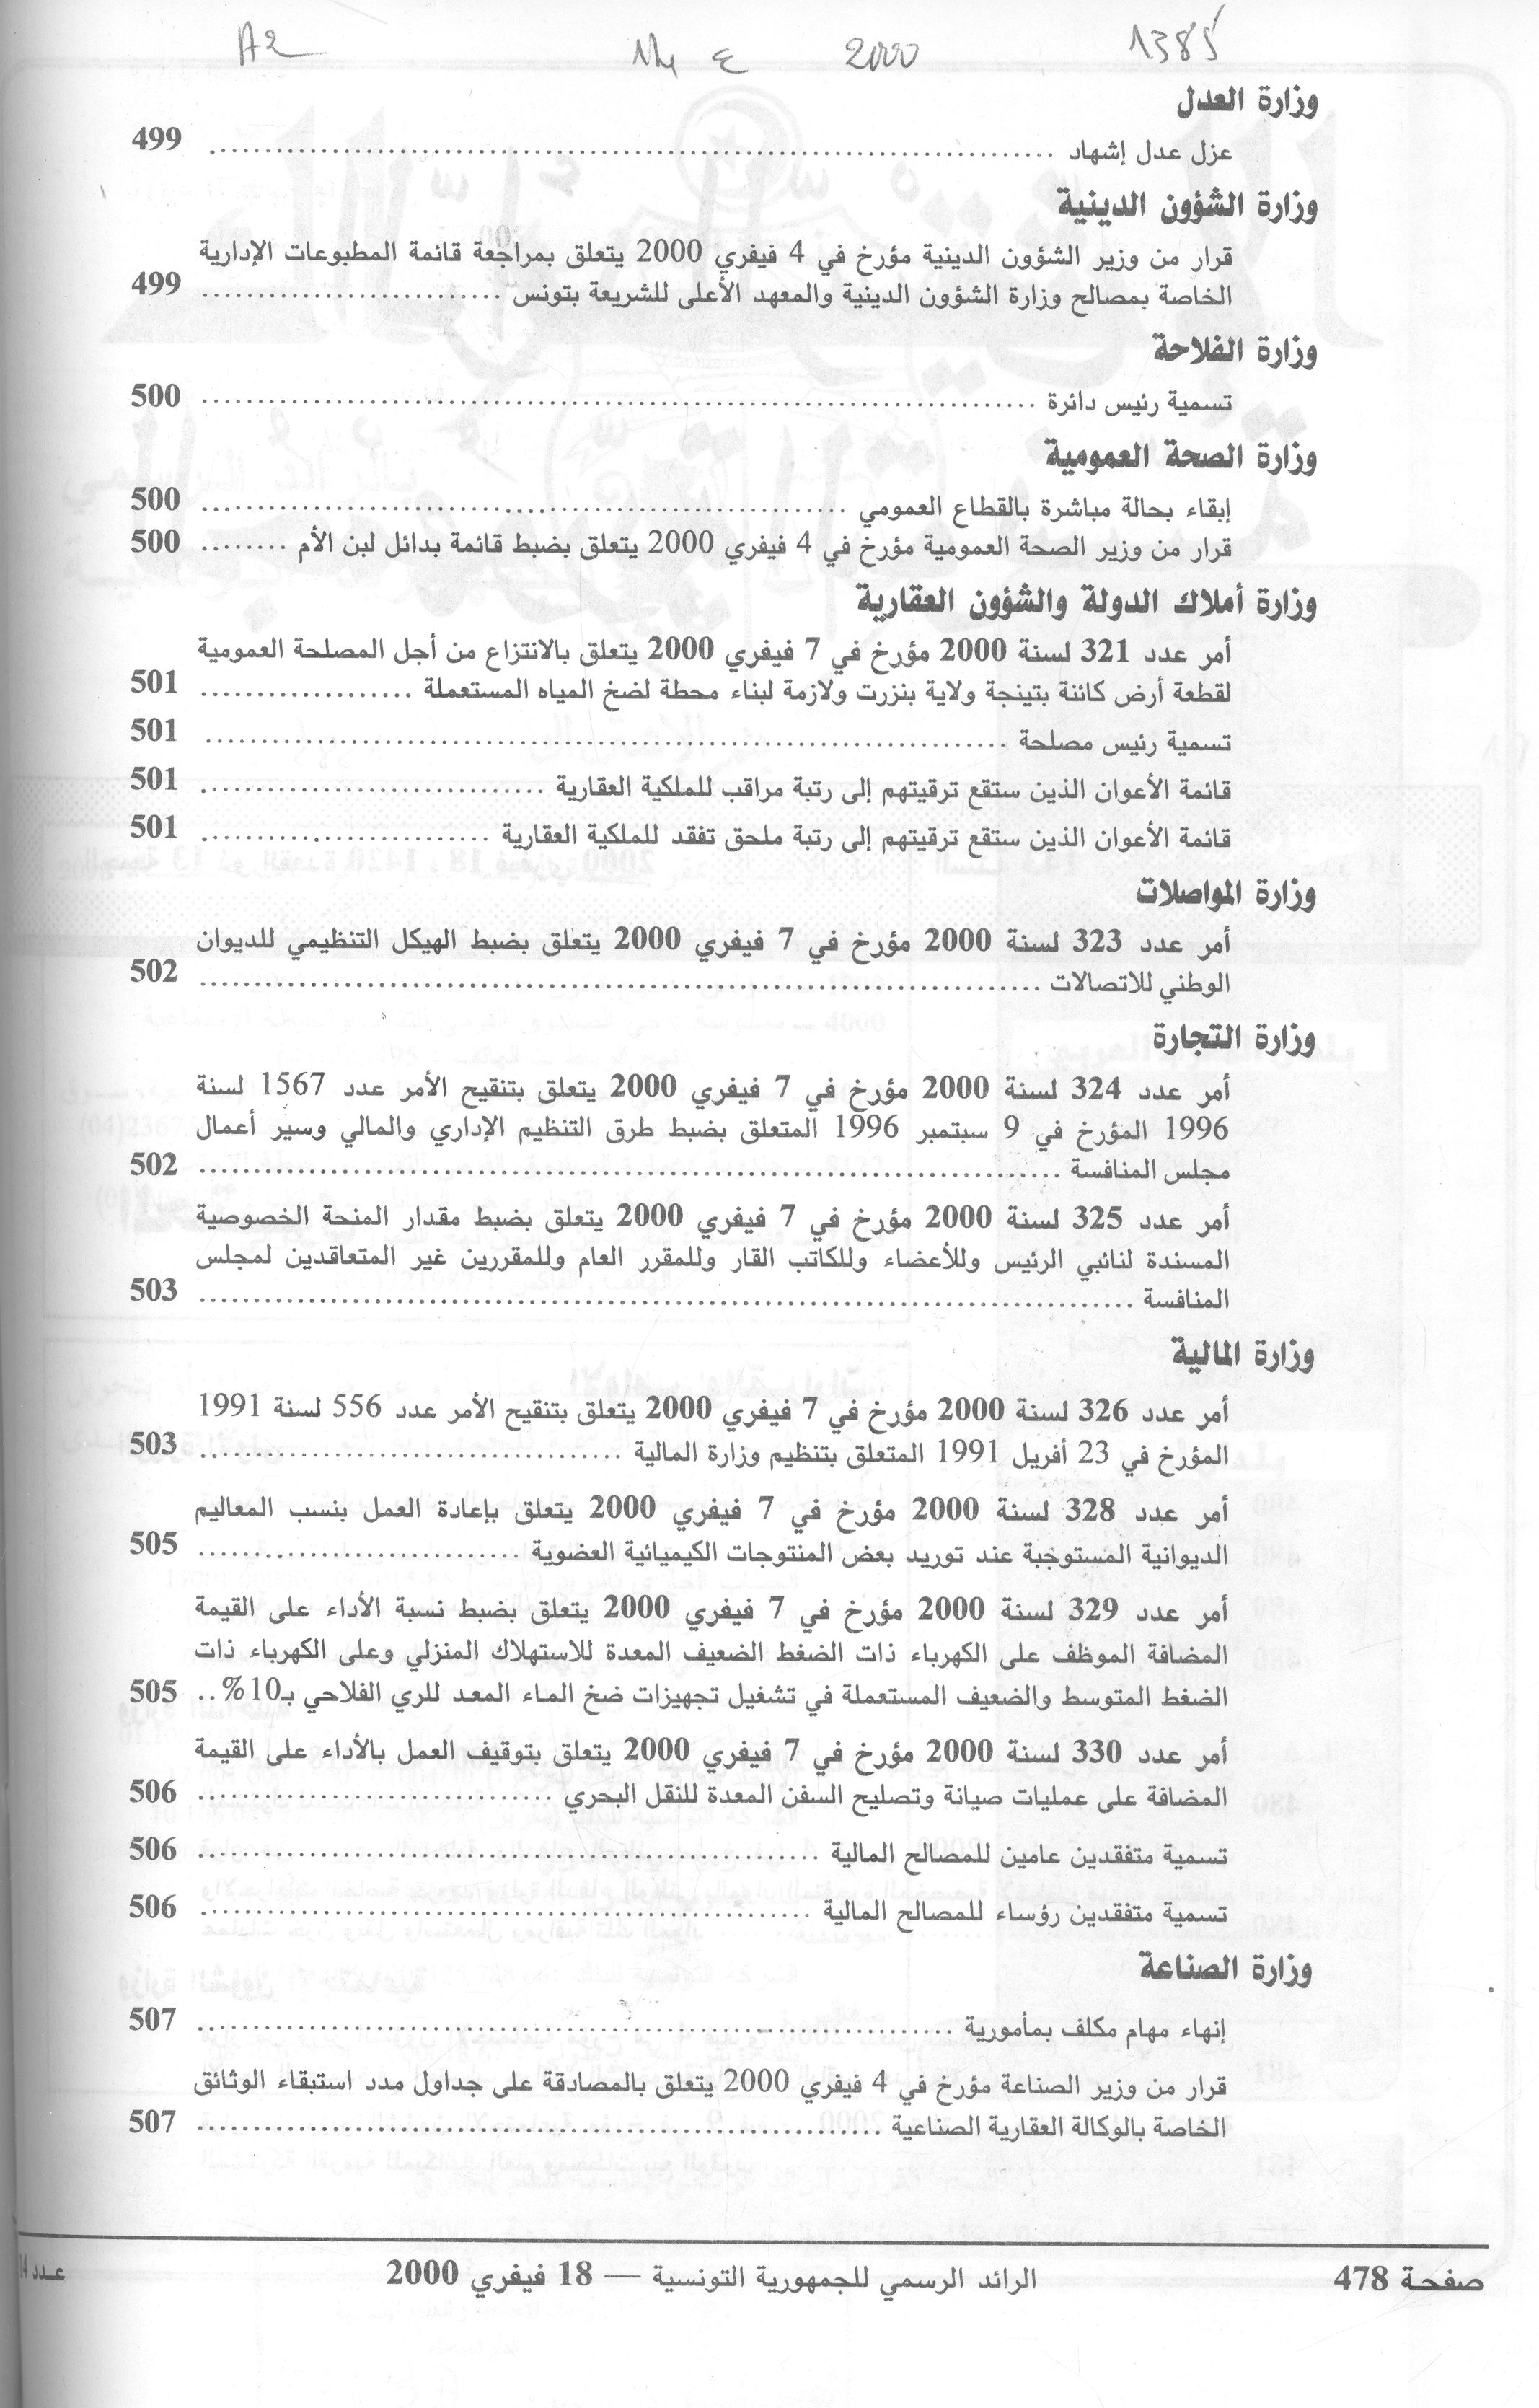 A2 14 ع 2000 1385
وزارة العدل
عزل عدل إشهاد ........ 499
وزارة الشؤون الدينية
قرار من وزير الشؤون الدينية مؤرخ في 4 فيفري 2000 يتعلق بمراجعة قائمة المطبوعات الإدارية
الخاصة بمصالح وزارة الشؤون الدينية والمعهد الأعلى للشريعة بتونس ........ 499
وزارة الفلاحة
تسمية رئيس دائرة ........ 500
وزارة الصحة العمومية
إبقاء بحالة مباشرة بالقطاع العمومي ........ 500
قرار من وزير الصحة العمومية مؤرخ في 4 فيفري 2000 يتعلق بضبط قائمة بدائل لبن الأم ........ 500
وزارة أملاك الدولة والشؤون العقارية
أمر عدد 321 لسنة 2000 مؤرخ في 7 فيفري 2000 يتعلق بالانتزاع من أجل المصلحة العمومية
لقطعة أرض كائنة بتينجة ولاية بنزرت ولازمة لبناء محطة لضخ المياه المستعملة ........ 501
تسمية رئيس مصلحة ........ 501
قائمة الأعوان الذين ستقع ترقيتهم إلى رتبة مراقب للملكية العقارية ........ 501
قائمة الأعوان الذين ستقع ترقيتهم إلى رتبة ملحق تفقد للملكية العقارية ........ 501
وزارة المواصلات
أمر عدد 323 لسنة 2000 مؤرخ في 7 فيفري 2000 يتعلق بضبط الهيكل التنظيمي للديوان
الوطني للاتصالات ........ 502
وزارة التجارة
أمر عدد 324 لسنة 2000 مؤرخ في 7 فيفري 2000 يتعلق بتنقيح الأمر عدد 1567 لسنة
1996 المؤرخ في 9 سبتمبر 1996 المتعلق بضبط طرق التنظيم الإداري والمالي وسير أعمال
مجلس المنافسة ........ 502
أمر عدد 325 لسنة 2000 مؤرخ في 7 فيفري 2000 يتعلق بضبط مقدار المنحة الخصوصية
المسندة لنائبي الرئيس وللأعضاء وللكاتب القار وللمقرر العام وللمقررين غير المتعاقدين لمجلس
المنافسة ........ 503
وزارة المالية
أمر عدد 326 لسنة 2000 مؤرخ في 7 فيفري 2000 يتعلق بتنقيح الأمر عدد 556 لسنة 1991
المؤرخ في 23 أفريل 1991 المتعلق بتنظيم وزارة المالية ........ 503
أمر عدد 328 لسنة 2000 مؤرخ في 7 فيفري 2000 يتعلق بإعادة العمل بنسب المعاليم
الديوانية المستوجبة عند توريد بعض المنتوجات الكيميائية العضوية ........ 505
أمر عدد 329 لسنة 2000 مؤرخ في 7 فيفري 2000 يتعلق بضبط نسبة الأداء على القيمة
المضافة الموظف على الكهرباء ذات الضغط الضعيف المعدة للاستهلاك المنزلي وعلى الكهرباء ذات
الضغط المتوسط والضعيف المستعملة في تشغيل تجهيزات ضخ الماء المعد للري الفلاحي بـ10% .. 505
أمر عدد 330 لسنة 2000 مؤرخ في 7 فيفري 2000 يتعلق بتوقيف العمل بالأداء على القيمة
المضافة على عمليات صيانة وتصليح السفن المعدة للنقل البحري ........ 506
تسمية متفقدين عامين للمصالح المالية ........ 506
تسمية متفقدين رؤساء للمصالح المالية ........ 506
وزارة الصناعة
إنهاء مهام مكلف بمأمورية ........ 507
قرار من وزير الصناعة مؤرخ في 4 فيفري 2000 يتعلق بالمصادقة على جداول مدد استبقاء الوثائق
الخاصة بالوكالة العقارية الصناعية ........ 507
صفحة 478 الرائد الرسمي للجمهورية التونسية — 18 فيفري 2000 عـدد 14